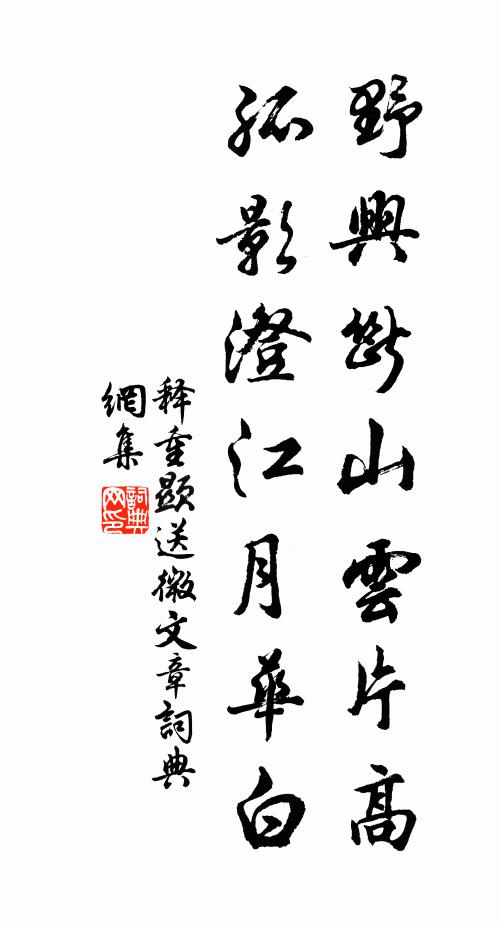 野興斷山雲片高
孤影澄江月華白
释重顯送微文章詞典
網集
詞典网印